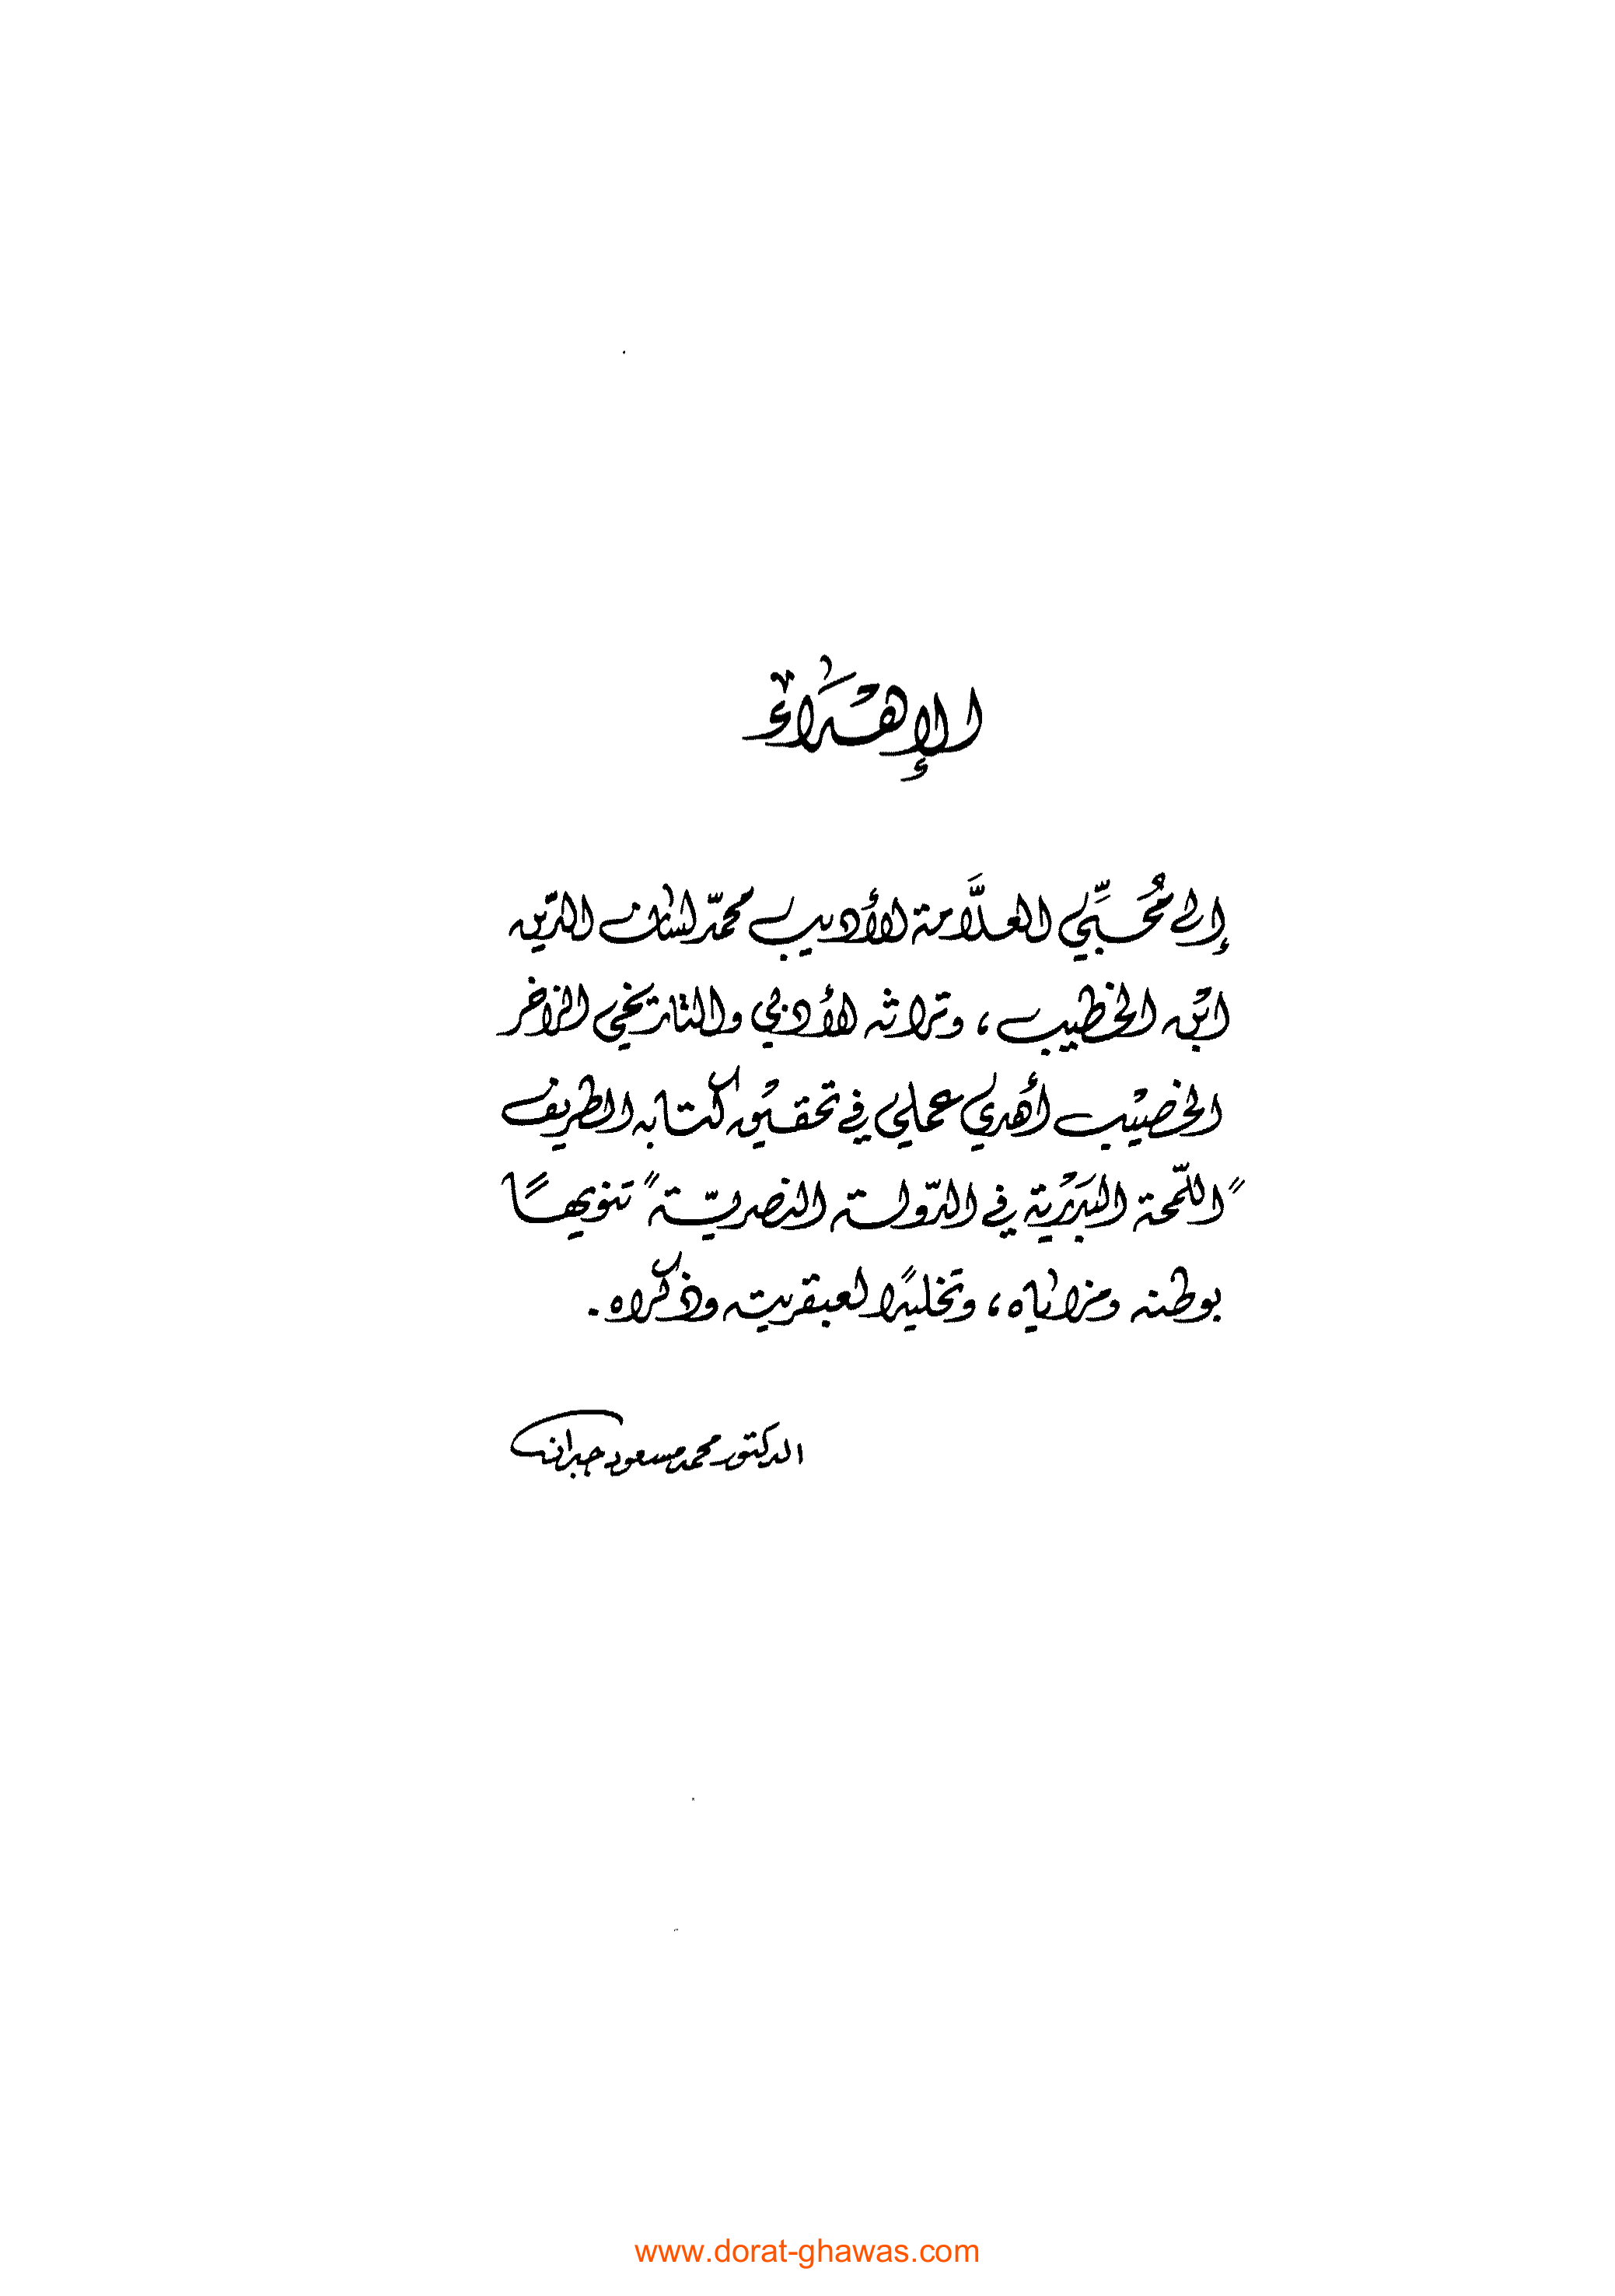 الإهْدَاءُ
إلى مُحبِّي العلَّامة الأديب محمّد لسان الدّين
ابْن الخطيب، وتراثه الأدبي والتاريخي الزاخر
الخصيْب أُهدي عملي في تحقيْق كتابه الطريف
"اللّمحة البَدْرية في الدّولة النصريّة" تنويهًا
بوطنه ومزاياه، وتخليدًا لعبقريته وذكراه.
الدكتور محمد مسعود جبران
www.dorat-ghawas.com